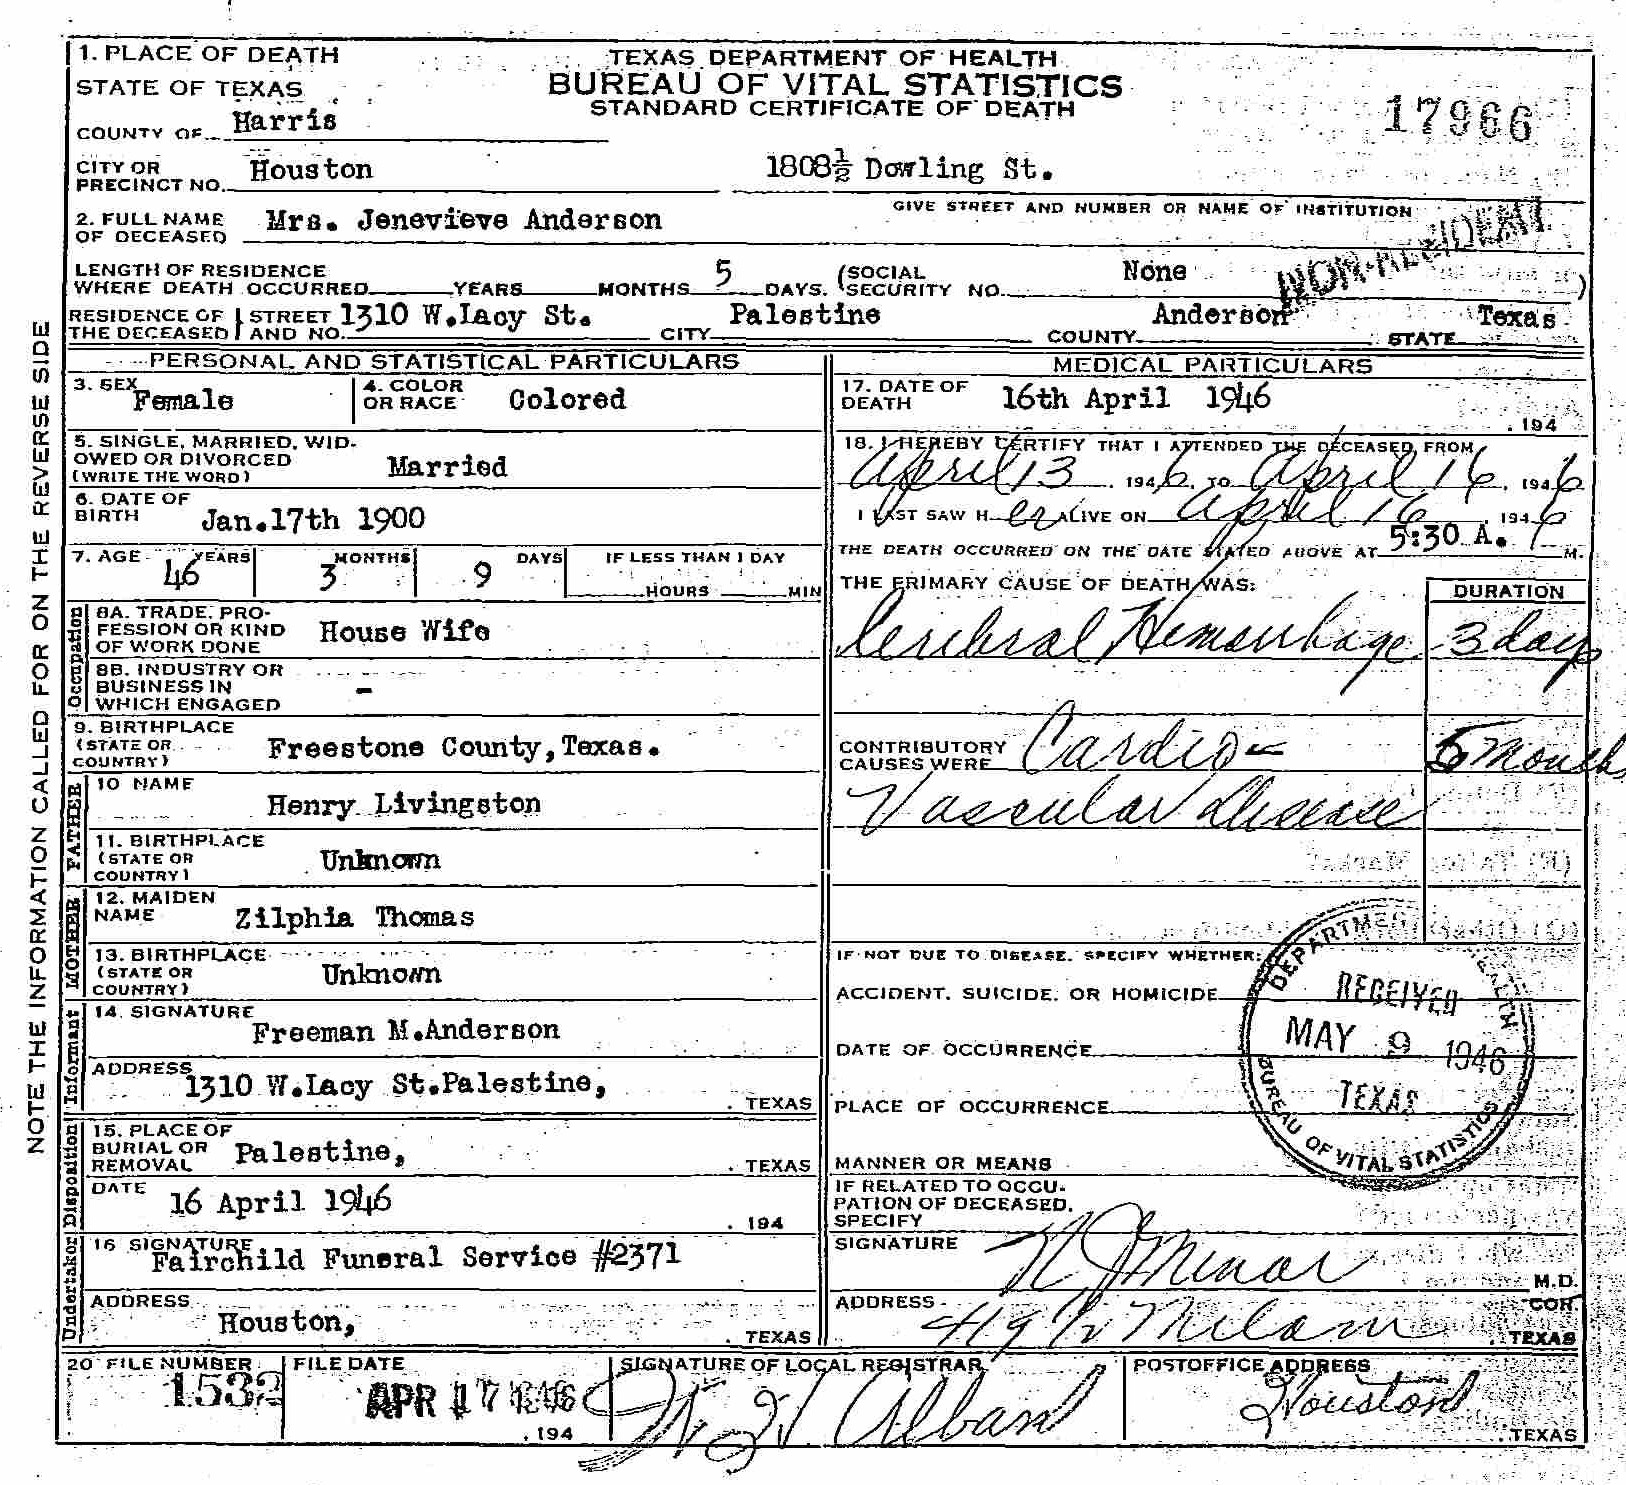 1. PLACE OF DEATH
TEXAS DEPARTMENT OF HEALTH
BUREAU OF VITAL STATISTICS
STANDARD CERTIFICATE OF DEATH
17966
STATE OF TEXAS
COUNTY OF Harris
CITY OR PRECINCT NO. Houston 1808½ Dowling St.
GIVE STREET AND NUMBER OR NAME OF INSTITUTION
2. FULL NAME OF DECEASED Mrs. Jenevieve Anderson
NON-RESIDENT
LENGTH OF RESIDENCE WHERE DEATH OCCURRED YEARS MONTHS 5 DAYS. (SOCIAL SECURITY NO. None )
RESIDENCE OF THE DECEASED STREET AND NO. 1310 W.Lacy St. CITY Palestine COUNTY Anderson STATE Texas
PERSONAL AND STATISTICAL PARTICULARS
3. SEX Female 4. COLOR OR RACE Colored
5. SINGLE, MARRIED, WIDOWED OR DIVORCED (WRITE THE WORD) Married
6. DATE OF BIRTH Jan.17th 1900
7. AGE 46 YEARS 3 MONTHS 9 DAYS IF LESS THAN 1 DAY HOURS MIN
Occupation
8A. TRADE, PROFESSION OR KIND OF WORK DONE House Wife
8B. INDUSTRY OR BUSINESS IN WHICH ENGAGED -
9. BIRTHPLACE (STATE OR COUNTRY) Freestone County, Texas.
FATHER
10 NAME Henry Livingston
11. BIRTHPLACE (STATE OR COUNTRY) Unknown
MOTHER
12. MAIDEN NAME Zilphia Thomas
13. BIRTHPLACE (STATE OR COUNTRY) Unknown
Informant
14. SIGNATURE Freeman M.Anderson
ADDRESS 1310 W.Lacy St.Palestine, . TEXAS
Disposition
15. PLACE OF BURIAL OR REMOVAL Palestine, . TEXAS
DATE 16 April 1946 . 194
Undertaker
16 SIGNATURE Fairchild Funeral Service #2371
ADDRESS Houston, . TEXAS
MEDICAL PARTICULARS
17. DATE OF DEATH 16th April 1946 . 194
18. I HEREBY CERTIFY THAT I ATTENDED THE DECEASED FROM
April 13 . 1946. TO April 16 . 1946
I LAST SAW HER ALIVE ON April 16 . 1946
THE DEATH OCCURRED ON THE DATE STATED ABOVE AT 5:30 A. M.
THE PRIMARY CAUSE OF DEATH WAS: DURATION
Cerebral Hemorrhage 3 days
CONTRIBUTORY CAUSES WERE Cardio- 5 Months
Vascular Disease
IF NOT DUE TO DISEASE, SPECIFY WHETHER:
ACCIDENT, SUICIDE, OR HOMICIDE
DATE OF OCCURRENCE
PLACE OF OCCURRENCE
MANNER OR MEANS
IF RELATED TO OCCUPATION OF DECEASED, SPECIFY
DEPARTMENT HEALTH
RECEIVED
MAY 9 1946
TEXAS
BUREAU OF VITAL STATISTICS
SIGNATURE N J Minor M.D.
ADDRESS 419½ Milam COR. . TEXAS
20 FILE NUMBER 1532 FILE DATE APR 17 1946 . 194
SIGNATURE OF LOCAL REGISTRAR
POSTOFFICE ADDRESS Houston . TEXAS
NOTE THE INFORMATION CALLED FOR ON THE REVERSE SIDE